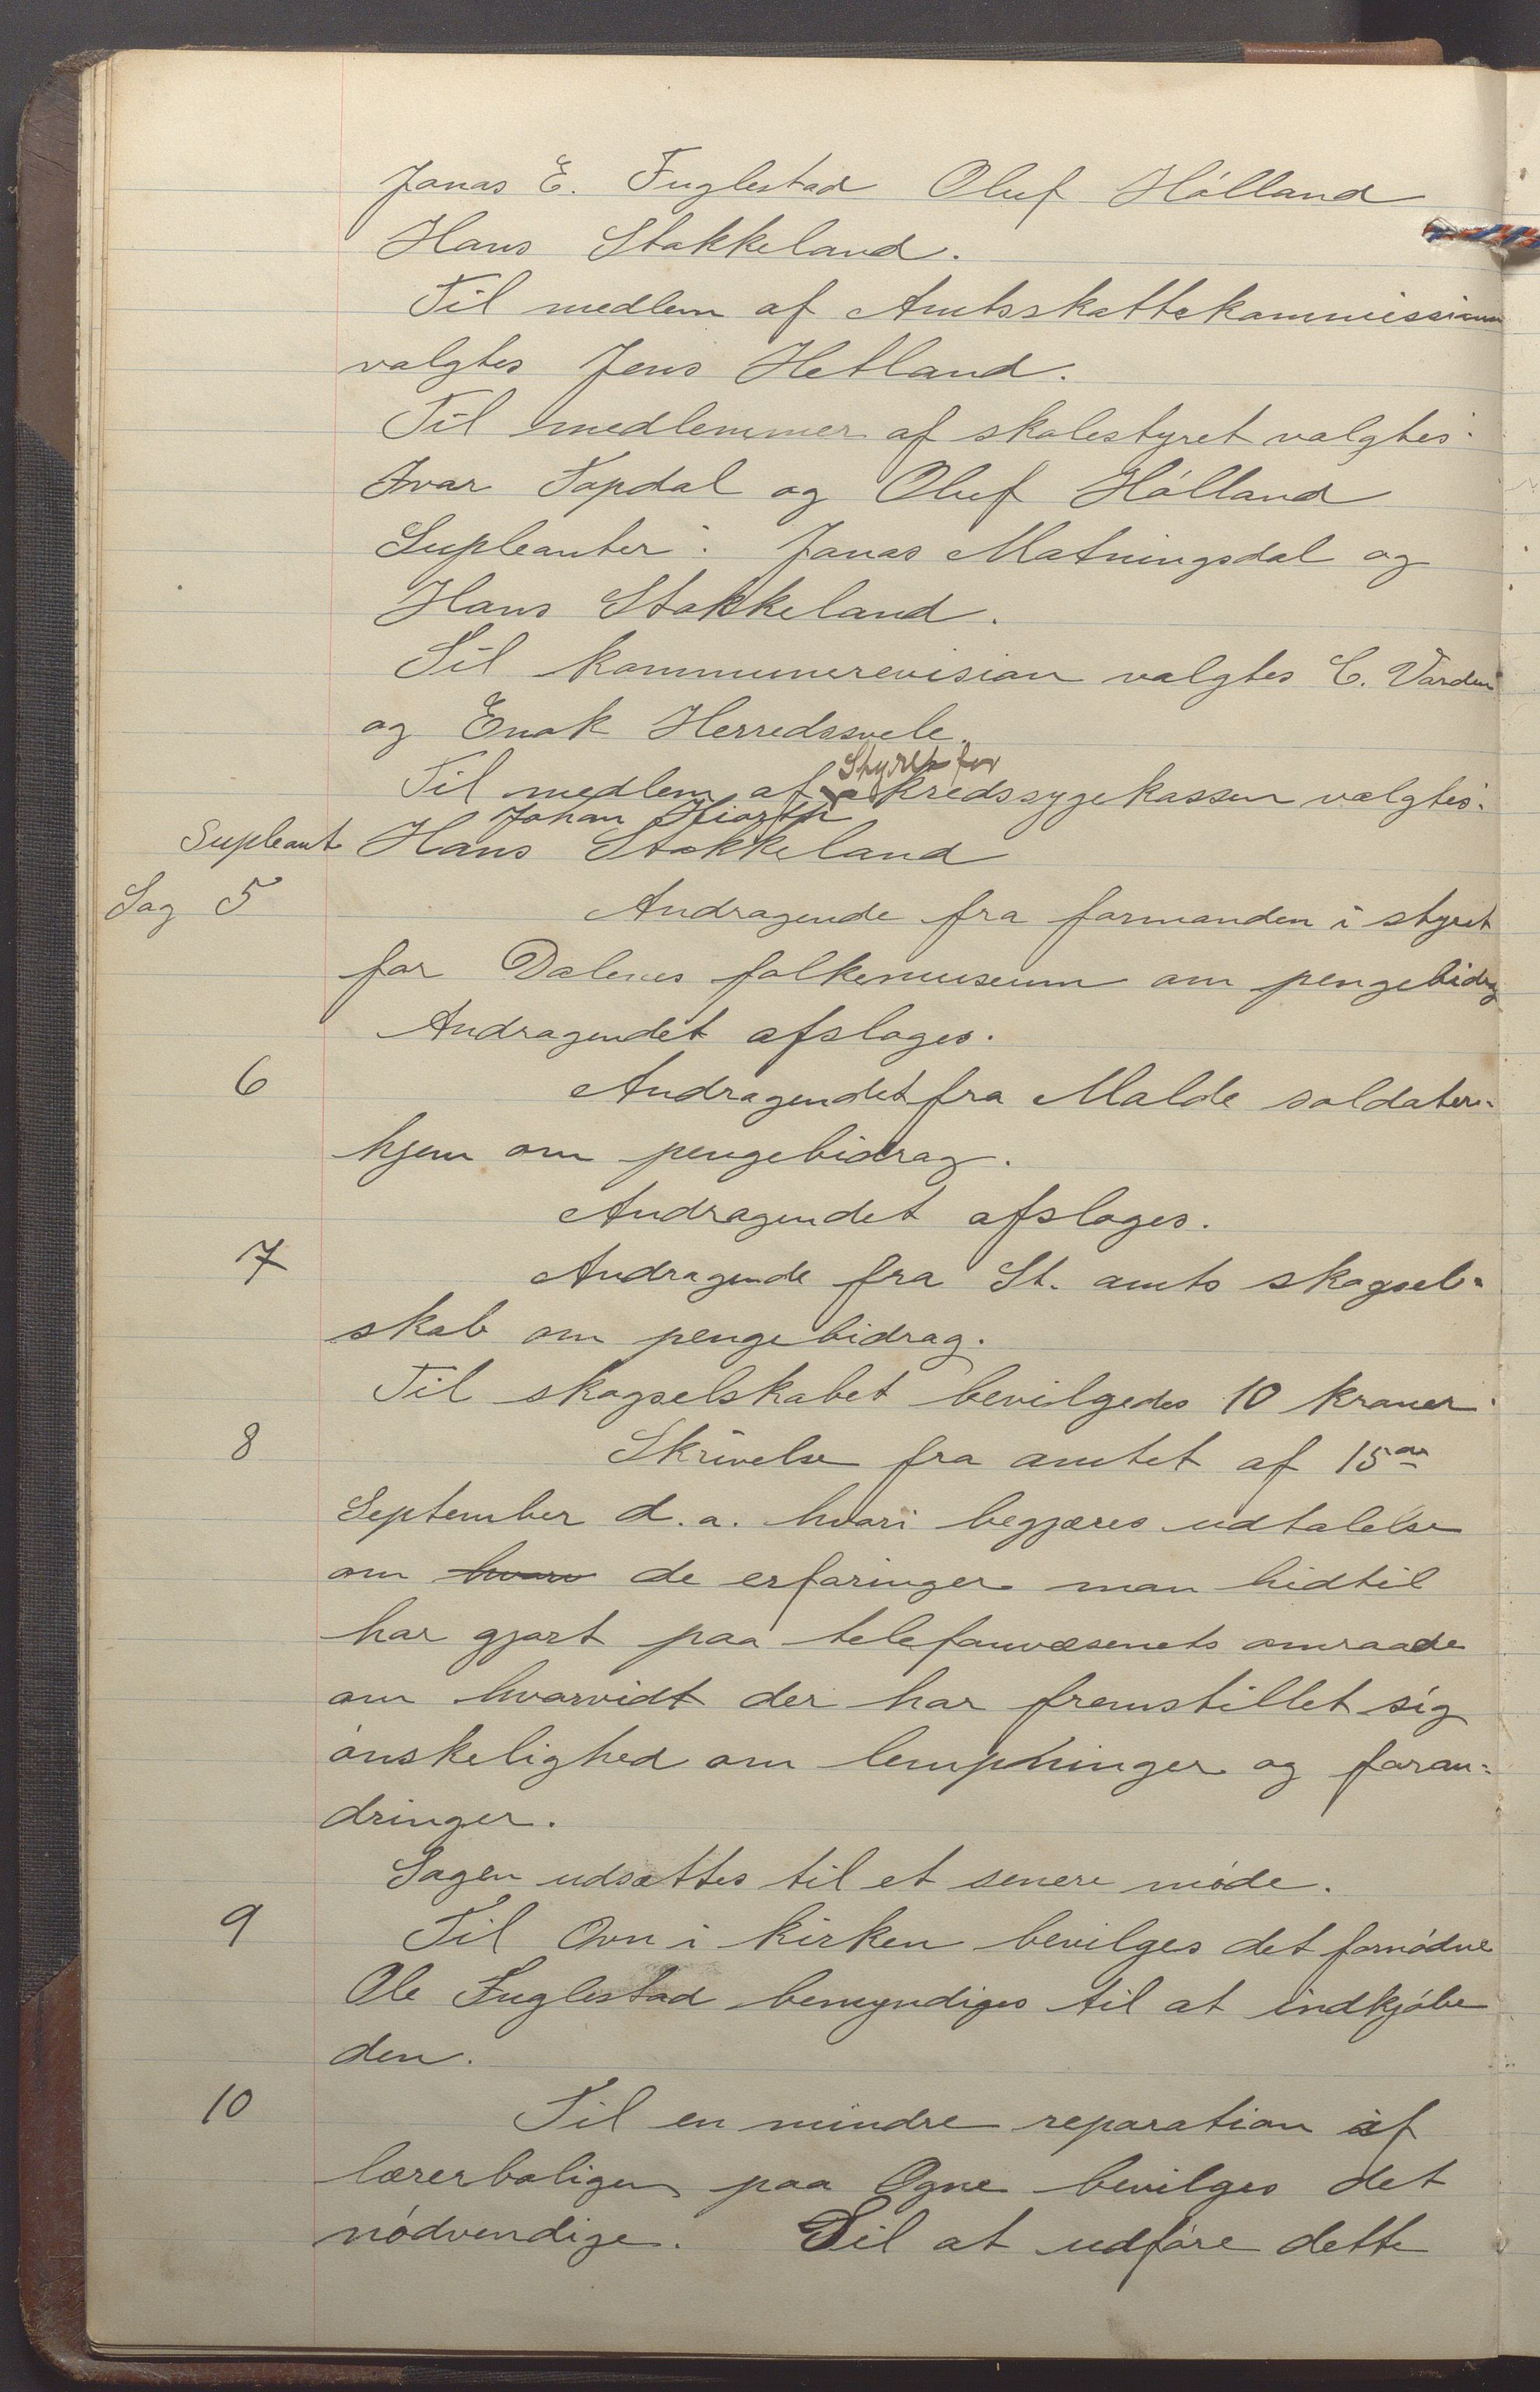 Jonas E. Fuglestad Oluf Hólland
Hans Stokkeland.
Til medlem af Amtsskattekommissionen
valgtes Jens Hetland.
Til medlemmer af skolestyret valgtes:
Ivar Topdal og Oluf Hólland
Supleanter: Jonas Matningsdal og
Hans Stokkeland.
Til kommunerevision valgtes C. Varden
og Enok Herredssvele.
Styret for
Til medlem af kredssygekassen valgtes:
Johan Hiorth
Supleant Hans Stokkeland
Sag 5 Andragende fra formanden i styret
for Dalenes folkemuseum om pengebidrag
Andragendet afsloges.
6 Andragendet fra Malde soldater-
hjem om pengebidrag.
Andragendet afsloges.
7 Andragende fra St. amts skogsel-
skab om pengebidrag.
Til skogselskabet bevilgedes 10 kroner.
8 Skrivelse fra amtet af 15de
September d.a. hvori begjæres udtalelse
om hvori de erfaringer man hidtil
har gjort paa telefonvæsenets omraade
om hvorvidt der har fremstillet sig
ónskelighed om lempninger og foran-
dringer.
Sagen udsættes til et senere móde.
9 Til Ovn i kirken bevilges det fornódne
Ole Fuglestad bemyndiges til at indkjóbe
den.
10 Til en mindre reparation af
lærerboligen paa Ogne bevilges det
nódvendige. Til at udfóre dette